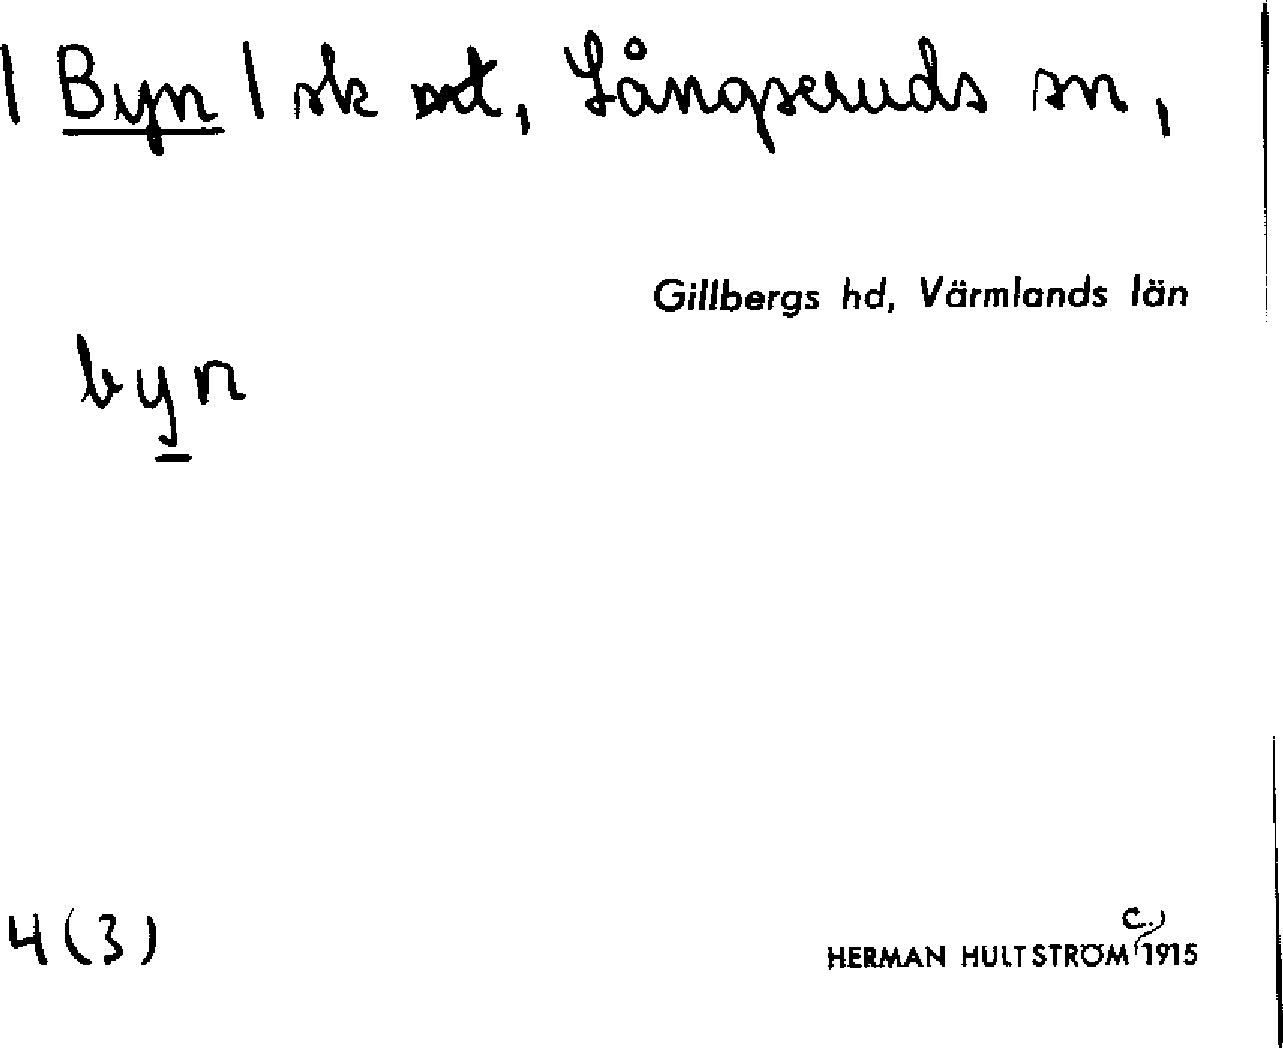 | Byn | sk ort, Långseruds sn,
Gillbergs hd, Värmlands län
byn
4(3)
HERMAN HULTSTRÖM c. 1915